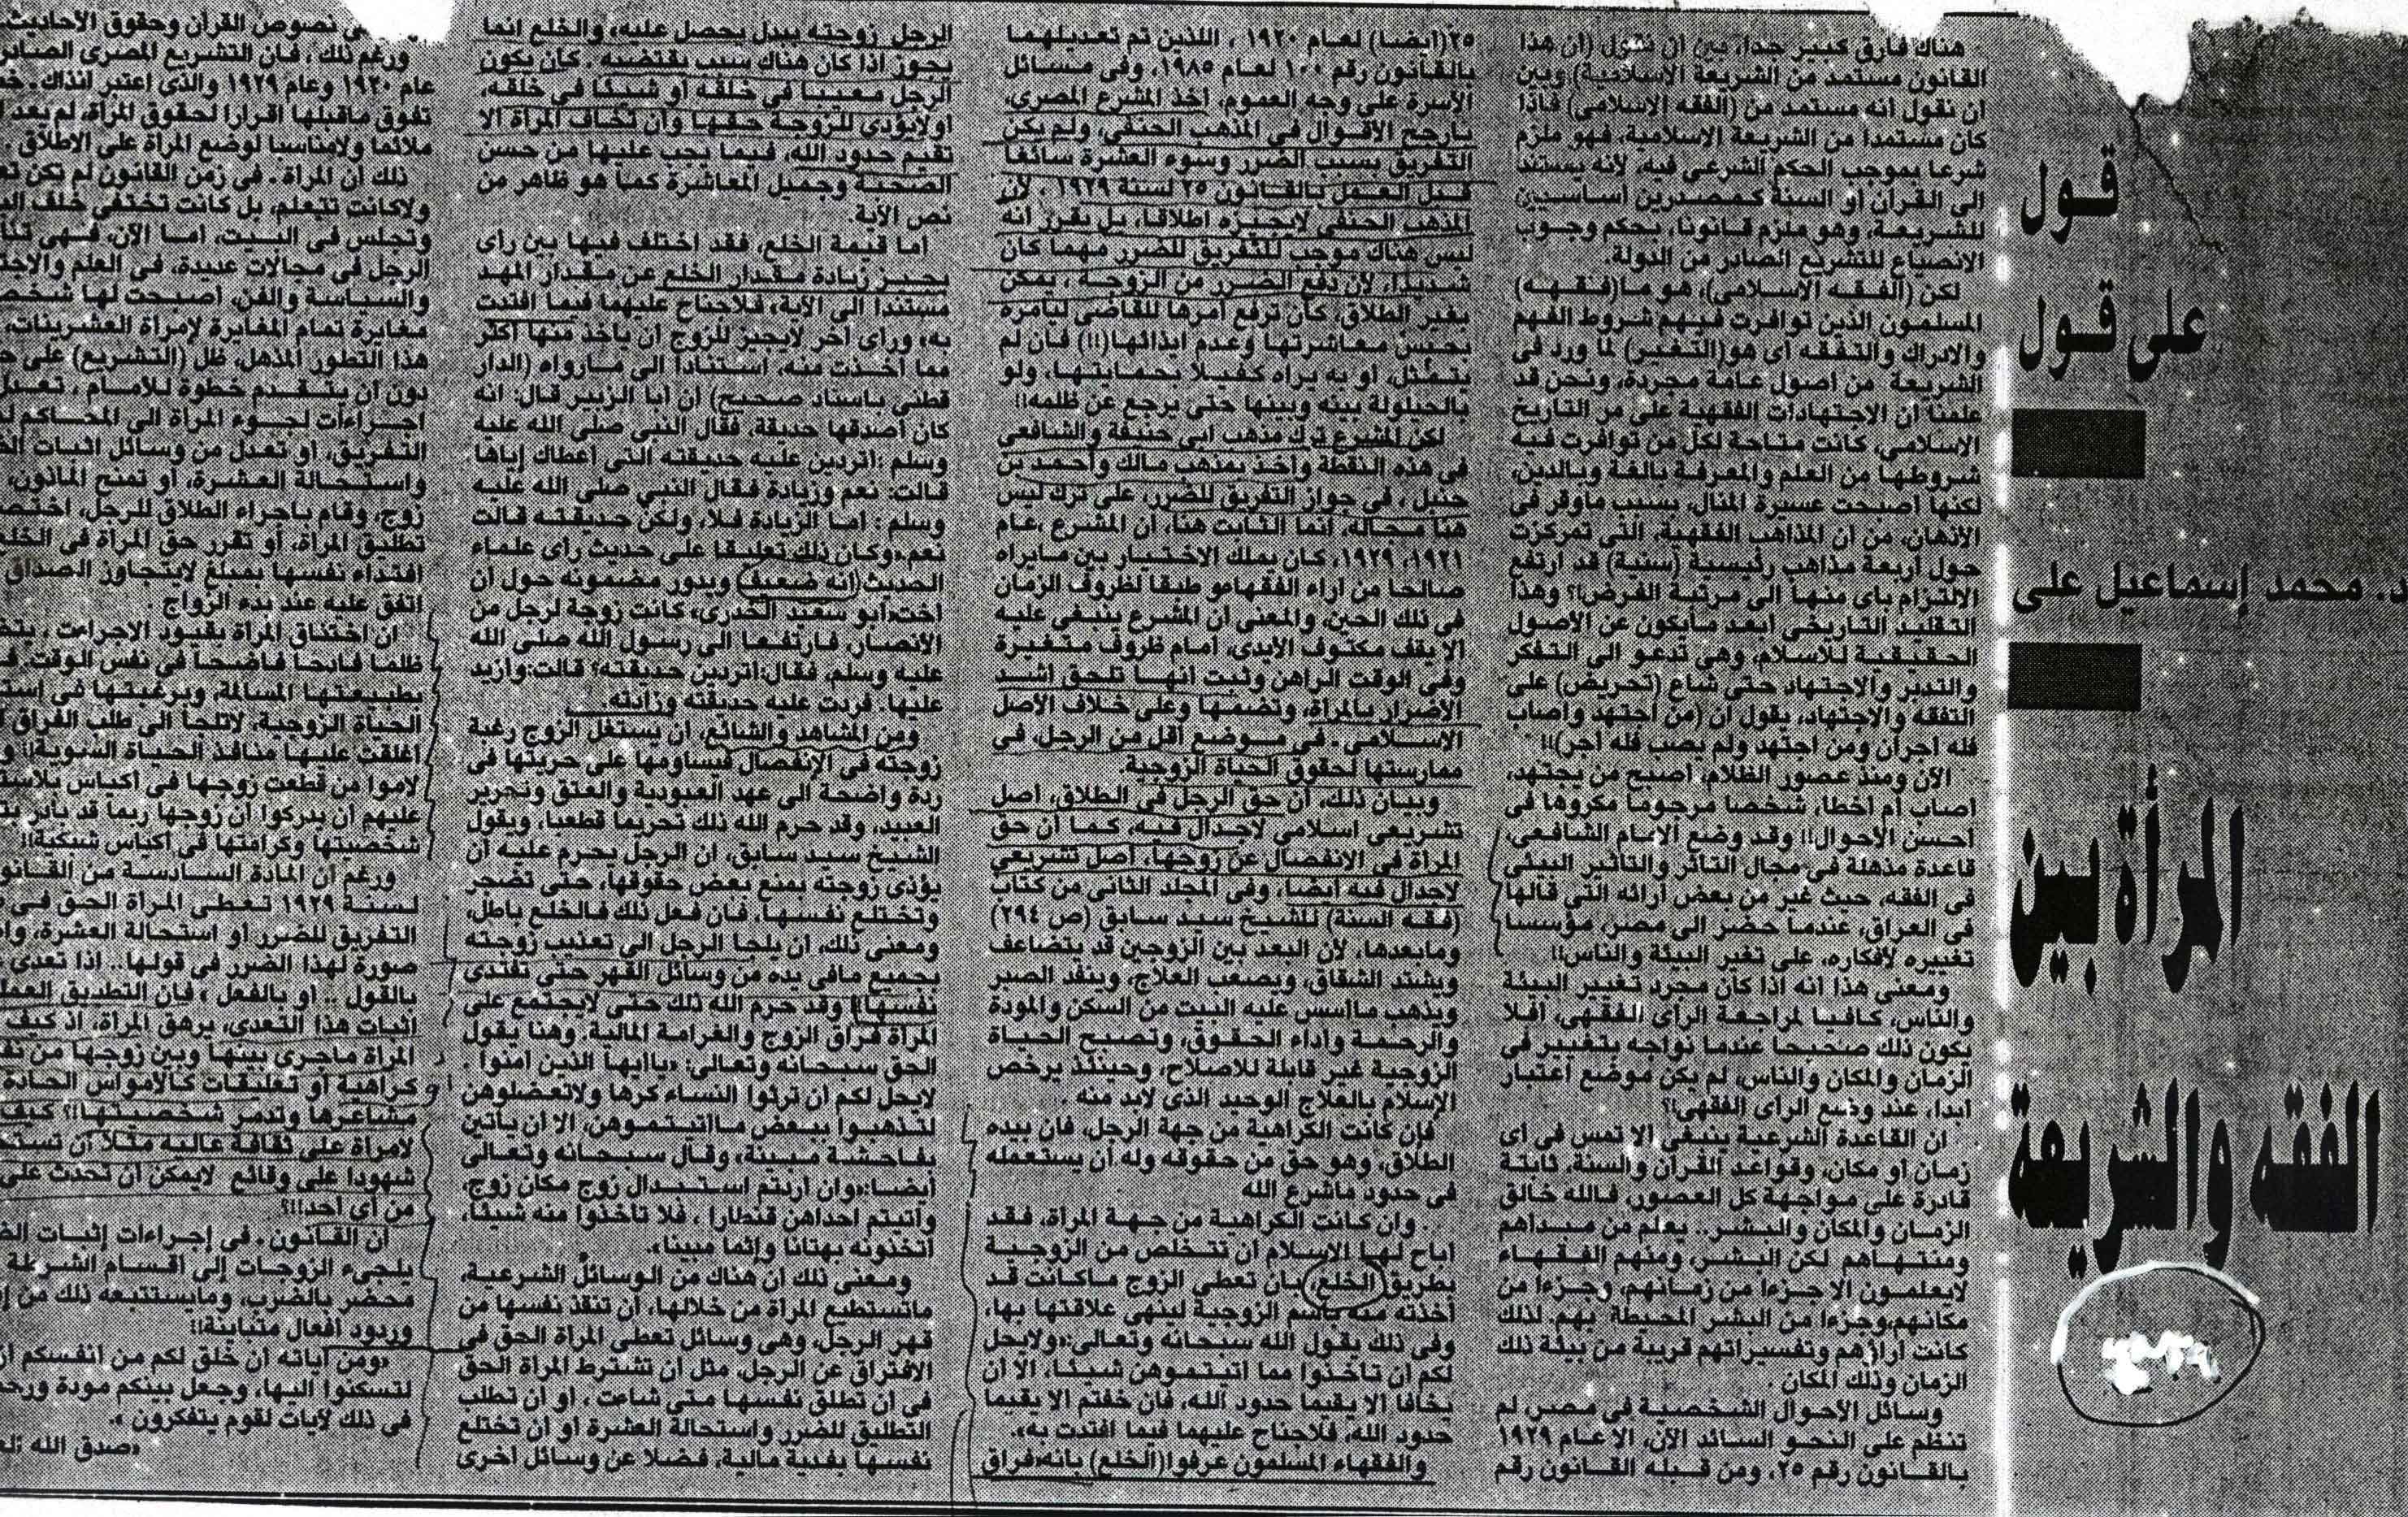 قول
على قول
د. محمد إسماعيل على
المرأة بين
الفقه والشريعة
هناك فارق كبير جدا، بين ان نقول (ان هذا
القانون مستمد من الشريعة الإسلامية) وبين
ان نقول انه مستمد من (الفقه الإسلامى) فاذا
كان مستمدا من الشريعة الإسلامية، فهو ملزم
شرعا بموجب الحكم الشرعى فيه، لأنه يستند
الى القرآن او السنة كمصدرين اساسيين
للشريعة، وهو ملزم قانونا، بحكم وجوب
الانصياع للتشريع الصادر من الدولة.
لكن (الفقه الاسلامى)، هو ما(فقهه)
المسلمون الذين توافرت فيهم شروط الفهم
والادراك والتفقه اى هو(التغير) لما ورد فى
الشريعة من اصول عامة مجردة، ونحن قد
علمنا ان الاجتهادات الفقهية على مر التاريخ
الاسلامى، كانت متاحة لكل من توافرت فيه
شروطها من العلم والمعرفة بالغة وبالدين،
لكنها اصبحت عسيرة المنال، بسبب ماوقر فى
الأذهان، من ان المذاهب الفقهية، التى تمركزت
حول اربعة مذاهب رئيسية (سنية) قد ارتفع
الالتزام باى منها الى مرتبة الفرض!؟ وهذا
التقليد التاريخى ابعد مايكون عن الأصول
الحقيقية للاسلام، وهى تدعو الى التفكر
والتدبر والاجتهاد حتى شاع (تحريض) على
التفقه والاجتهاد، يقول ان (من اجتهد واصاب
فله اجران ومن اجتهد ولم يصب فله اجر)!!
الآن ومنذ عصور الظلام، اصبح من يجتهد،
اصاب ام اخطا، شخصا مرجوما مكروها فى
احسن الأحوال!! وقد وضع الإمام الشافعى،
قاعدة مذهلة فى مجال التاثر والتاثير البيئى
فى الفقه، حيث غير من بعض ارائه التى قالها
فى العراق، عندما حضر الى مصر، مؤسسا
تغييره لأفكاره، على تغير البيئة والناس!!
ومعنى هذا انه اذا كان مجرد تغيير البيئة
والناس، كافيا لمراجعة الرأى الفقهى، افلا
يكون ذلك صحيحا عندما نواجه بتغيير فى
الزمان والمكان والناس، لم يكن موضع اعتبار
ابدا، عند وضع الرأى الفقهى!؟
ان القاعدة الشرعية ينبغى الا تمس فى اى
زمان او مكان، وقواعد القرآن والسنة، ثابتة
قادرة على مواجهة كل العصور، فالله خالق
الزمان والمكان والبشر.. يعلم من مبداهم
ومنتهاهم لكن البشر، ومنهم الفقهاء
لايعلمون الا جزءا من زمانهم، وجزءا من
مكانهم،وجزءا من البشر المحيطة بهم، لذلك
كانت اراؤهم وتفسيراتهم قريبة من بيئة ذلك
الزمان وذلك المكان.
وسائل الأحوال الشخصية فى مصر، لم
تنظم على النحو السائد الآن، الا عام ١٩٢٩
بالقانون رقم ٢٥، ومن قبله القانون رقم
٢٥(ايضا) لعام ١٩٢٠، اللذين تم تعديلهما
بالقانون رقم ١٠٠ لعام ١٩٨٥، وفى مسائل
الأسرة على وجه العموم، اخذ المشرع المصرى،
بارجح الأقوال فى المذهب الحنفى، ولم يكن
التفريق بسبب الضرر وسوء العشرة سائغا
قبل العمل بالقانون ٢٥ لسنة ١٩٢٩، لأن
المذهب الحنفى لايجيزه اطلاقا، بل يقرر انه
ليس هناك موجب للتفريق للضرر مهما كان
شديدا، لأن دفع الضرر من الزوجة، يمكن
بغير الطلاق، كأن ترفع امرها للقاضى ليامره
بحسن معاشرتها وعدم ايذائها(!!) فان لم
يتمثل، او به يراه كفيلا بحمايتها، ولو
بالحيلولة بينه وبينها حتى يرجع عن ظلمه!!
لكن المشرع ترك مذهب ابى حنيفة والشافعى
فى هذه النقطة واخذ بمذهب مالك واحمد بن
حنبل، فى جواز التفريق للضرر، على ترك ليس
هنا مجاله، إنما الثابت هنا، ان المشرع ،عام
١٩٢١، ١٩٢٩، كان يملك الاختيار بين مايراه
صالحا من اراء الفقهاء،و طبقا لظروف الزمان
فى ذلك الحين، والمعنى ان المشرع ينبغى عليه
الا يقف مكتوف الأيدى، امام ظروف متغيرة
وفى الوقت الراهن وثبت انها تلحق اشد
الأضرار بالمرأة، وتضعها وعلى خلاف الأصل
الاسلامى. فى موضع اقل من الرجل، فى
ممارستها لحقوق الحياة الزوجية.
وبيان ذلك، ان حق الرجل فى الطلاق، اصل
تشريعى اسلامى لاجدال فيه، كما ان حق
المرأة فى الانفصال عن زوجها، اصل تشريعى
لاجدال فيه ايضا، وفى المجلد الثانى من كتاب
(فقه السنة) للشيخ سيد سابق (ص ٢٩٤)
ومابعدها، لأن البعد بين الزوجين قد يتضاعف
ويشتد الشقاق، ويصعب العلاج، وينفد الصبر
ويذهب مااسس عليه البيت من السكن والمودة
والرحمة واداء الحقوق، وتصبح الحياة
الزوجية غير قابلة للاصلاح، وحينئذ يرخص
الإسلام بالعلاج الوحيد الذى لابد منه.
فإن كانت الكراهية من جهة الرجل، فان بيده
الطلاق، وهو حق من حقوقه وله ان يستعمله
فى حدود ماشرع الله
. وان كانت الكراهية من جهة المرأة، فقد
اباح لها الاسلام ان تتخلص من الزوجية
بطريق (الخلع) بأن تعطى الزوج ماكانت قد
أخذته منه باسم الزوجية لينهى علاقتها بها،
وفى ذلك يقول الله سبحانه وتعالى:«ولايحل
لكم ان تاخذوا مما اتيتموهن شيئا، الا ان
يخافا الا يقيما حدود الله، فان خفتم الا يقيما
حدود الله، فلاجناح عليهما فيما افتدت به».
والفقهاء المسلمون عرفوا(الخلع) بأنه«فراق
الرجل زوجته ببدل يحصل عليه، والخلع انما
يجوز اذا كان هناك سبب يقتضيه. كأن يكون
الرجل معيبا فى خلقه أو شيئا فى خلقه،
اولايؤدى للزوجة حقها وان تخاف المرأة الا
تقيم حدود الله، فيما يجب عليها من حسن
الصحبة وجميل المعاشرة كما هو ظاهر من
نص الآية.
اما قيمة الخلع، فقد اختلف فيها بين رأى
يجيز زيادة مقدار الخلع عن مقدار المهد
مستندا الى الآية، فلاجناح عليهما فيما افتدت
به، ورأى آخر لايجيز للزوج ان ياخذ منها اكثر
مما اخذت منه، استنادا الى مارواه (الدار
قطنى باسناد صحيح) ان ابا الزبير قال: انه
كان اصدقها حديقة، فقال النبى صلى الله عليه
وسلم :اتردين عليه حديقته التى اعطاك إياها
قالت: نعم وزيادة فقال النبي صلى الله عليه
وسلم : اما الزيادة فلا، ولكن حديقته قالت
نعم،«وكان ذلك تعليقا على حديث رأى علماء
الحديث (انه ضعيف) ويدور مضمونه حول ان
اخت،ابو سعيد الخدرى، كانت زوجة لرجل من
الأنصار، فارتفعا الى رسول الله صلى الله
عليه وسلم، فقال:اتردين حديقته؟ قالت:وازيد
عليها. فردت عليه حديقته وزادته.
ومن المشاهد والشائع، أن يستغل الزوج رغبة
زوجته فى الإنفصال فيساومها على حريتها فى
ردة واضحة الى عهد العبودية والعتق وتحرير
العبيد، وقد حرم الله ذلك تحريما قطعيا، ويقول
الشيخ سيد سابق، ان الرجل يحرم عليه ان
يؤذى زوجته بمنع بعض حقوقها، حتى تضجر
وتختلع نفسها، فان فعل ذلك فالخلع باطل،
ومعنى ذلك، ان يلجا الرجل الى تعذيب زوجته
بجميع مافى يده من وسائل القهر حتى تفتدى
نفسها!! وقد حرم الله ذلك حتى لايجتمع على
المرأة فراق الزوج والغرامة المالية. وهنا يقول
الحق سبحانه وتعالى: «ياايها الذين امنوا .
لايحل لكم ان ترثوا النساء كرها ولاتعضلوهن
لتذهبوا ببعض مااتيتموهن، الا ان ياتين
بفاحشة مبينة، وقال سبحانه وتعالى
أيضا:«وان اردتم استبدال زوج مكان زوج،
واتيتم احداهن قنطارا، فلا تاخذوا منه شيئا،
اتخذونه بهتانا وإثما مبينا».
ومعنى ذلك ان هناك من الوسائل الشرعية،
ماتستطيع المرأة من خلالها، أن تنقذ نفسها من
قهر الرجل، وهى وسائل تعطى المرأة الحق فى
الافتراق عن الرجل، مثل ان تشترط المرأة الحق
فى ان تطلق نفسها متى شاءت، او ان تطلب
التطليق للضرر واستحالة العشرة او ان تختلع
نفسها بفدية مالية، فضلا عن وسائل اخرى
فى نصوص القرآن وحقوق الأحاديث
ورغم ذلك، فان التشريع المصرى الصادر
عام ١٩٢٠ وعام ١٩٢٩ والذى اعتبر انذاك.
تفوق ماقبلها اقرارا لحقوق المرأة، لم يعد
ملائما ولامناسبا لوضع المرأة على الاطلاق.
ذلك ان المرأة. فى زمن القانون لم تكن
ولاكانت تتعلم، بل كانت تختفى خلف
وتجلس فى البيت، اما الآن، فهى
الرجل فى مجالات عديدة، فى العلم
والسياسة والفن، اصبحت لها
مغايرة تمام المغايرة لإمرأة العشرينات،
هذا التطور المذهل، ظل (التشريع) على
دون ان يتقدم خطوة للأمام،
اجراءات لجوء المرأة الى المحاكم
التفريق، او تعدل من وسائل اثبات
واستحالة العشرة، أو تمنح المأذون،
زوج، وقام باجراء الطلاق للرجل،
تطليق المرأة، أو تقرر حق المرأة فى
افتداء نفسها بمبلغ لايتجاوز الصداق
اتفق عليه عند بدء الزواج.
ان اختناق المرأة بقيود الاجراءت،
ظلما فادحا فاضحا فى نفس الوقت.
بطبيعتها المسالمة، وبرغبتها فى
الحياة الزوجية، لاتلجأ الى طلب الفراق
اغلقت عليها منافذ الحياة السوية!!
لاموا من قطعت زوجها فى اكياس
عليهم ان يدركوا ان زوجها ربما قد
شخصيتها وكرامتها فى اكياس شبكية!!
ورغم ان المادة السادسة من
لسنة ١٩٢٩ تعطى المرأة الحق فى
التفريق للضرر او استحالة العشرة،
صورة لهذا الضرر فى قولها.. اذا تعدى
بالقول .. او بالفعل، فإن التطبيق
اثبات هذا التعدى، يرهق المرأة، اذ كيف
المرأة ماجرى بينها وبين زوجها من
كراهية أو تعليقات كالأمواس الحادة
مشاعرها وتدمر شخصيتها!؟ كيف
لامرأة على ثقافة عالية مثلا ان
شهودا على وقائع لايمكن ان تحدث على
من أى أحد!!؟
ان القانون. فى إجراءات إثبات
يلجىء الزوجات إلى أقسام الشرطة
محضر بالضرب، ومايستتبعه ذلك من
وردود افعال متباينة!!
«ومن أياته ان خلق لكم من انفسكم
لتسكنوا إليها، وجعل بينكم مودة
فى ذلك لآيات لقوم يتفكرون».
«صدق الله